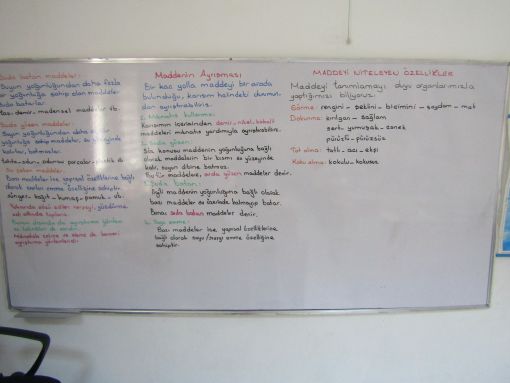 Suda batan maddeler:
Suyun yoğunluğundan daha fazla
bir yoğunluğa sahip olan maddeler
suda batarlar.
taş - demir - madensel maddeler vb.
Suda yüzen maddeler:
Suyun yoğunluğundan daha az bir
yoğunluğa sahip maddeler, su yüzeyinde
kalırlar, batmazlar.
tahta - odun - odunsu parçalar - plastik
Su çeken maddeler:
Bazı maddeler ise yapısal özelliklerine bağlı
olarak sıvıları emme özelliğine sahiptir.
sünger - kağıt - kumaş - pamuk - vb.
Maddenin Ayrışması
Bir kaç yolla maddeyi bir arada
bulunduğu, karışım halindeki durumun-
dan ayrıştırabiliriz.
1. Mıknatıs kullanma:
Karışımın içerisinden demir - nikel - kobalt
maddeleri mıknatıs yardımıyla ayrıştırabiliriz.
2. Suda yüzme:
Söz konusu maddenin yoğunluğuna bağlı
olarak maddelerin bir kısmı su yüzeyinde
kalır, suyun dibine batmaz.
Bu tür maddelere, suda yüzen maddeler denir.
3. Suda batan:
İlgili maddenin yoğunluğuna bağlı olarak
bazı maddeler su üzerinde kalmayıp batar.
Buna; suda batan maddeler denir.
4. Suyu emme:
Bazı maddeler ise yapısal özelliklerine
bağlı olarak suyu/sıvıyı emme özelliğine
sahiptir.
MADDEYİ NİTELEYEN ÖZELLİKLER
Maddeyi tanımlamayı duyu organlarımızla
yaptığımızı biliyoruz:
Görme: rengini - şeklini - biçimini - saydam - mat
Dokunma: kırılgan - sağlam
sert - yumuşak - esnek
pürüzlü - pürüzsüz
Tat alma: tatlı - acı - ekşi
Koku alma: kokulu - kokusuz